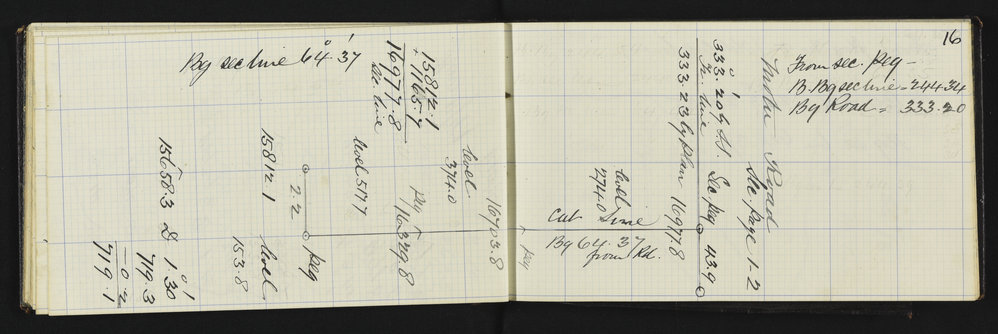 16
From sec. Peg –
B. Bg sec line = 244.34
Bg Road = 333.20
Bg sec line 64° 37'
15812.1
+ 1165.7
16977.8
Sec. line
333° 20'
The line
333.23 by plan
16977.8
Sec peg 43.9
Motu Road
See Page 1-2
level
274.0
Cut Line
Bg 64.37
from Rd.
Peg
16703.8
level
374.0
Peg
16329.8
level 517.7
15812.1
22
Peg
level
153.8
15658.3
& 1° 30'
719.3
– 0.2
719.1